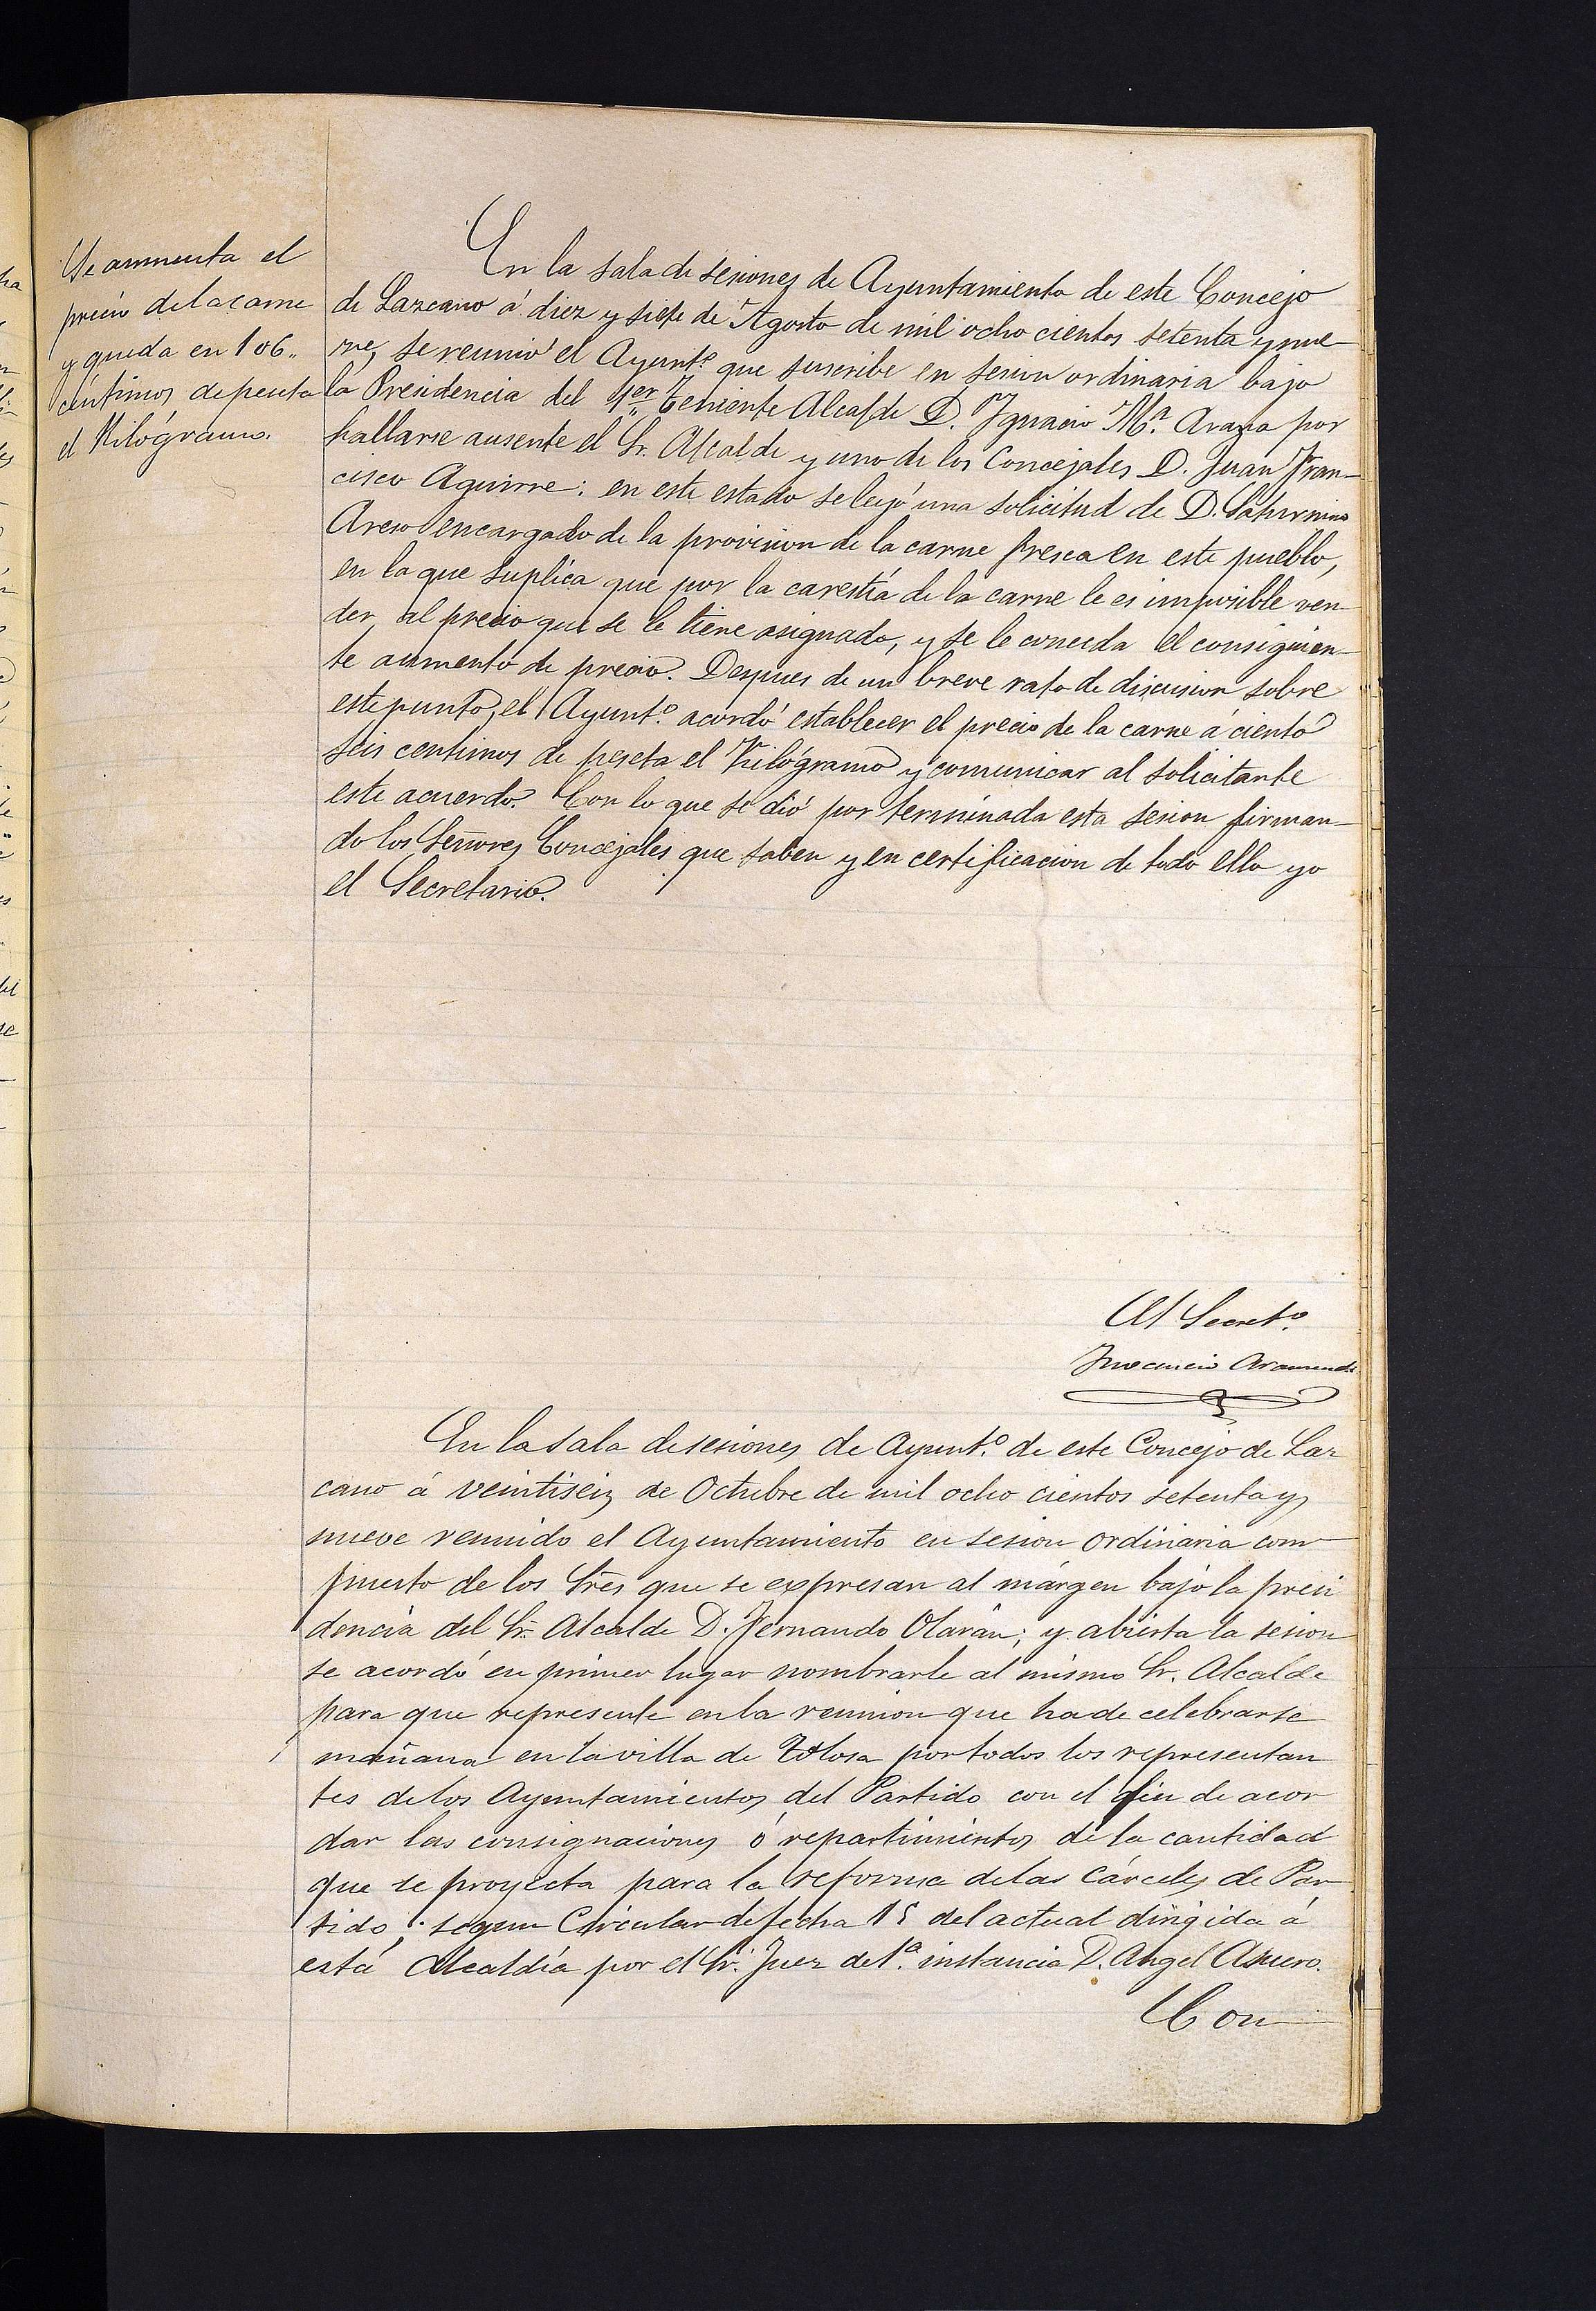 Se aumenta el
precio de la carne
y queda en 106,,
céntimos de peseta
el Kilógramo.
En la sala de sesiones de Ayuntamiento de este Concejo
de Lazcano á diez y siete de Agosto de mil ocho cientos setenta y nue-
ve, se reunió el Ayunt.º que suscribe en sesion ordinaria bajo
la Presidencia del 1er Teniente Alcalde D. Ignacio M.ª Arana por
hallarse ausente el Sr. Alcalde y uno de los Concejales D. Juan Fran-
cisco Aguirre: en este estado se leyó una solicitud de D. Saturnino
Areso encargado de la provision de la carne fresca en este pueblo,
en la que suplica que por la carestía de la carne le es imposible ven-
der al precio que se le tiene asignado, y se le conceda el consiguien-
te aumento de precio. Despues de un breve rato de discusion sobre
este punto, el Ayunt.º acordó establecer el precio de la carne á ciento
seis centimos de peseta el Kilógramo y comunicar al solicitante
este acuerdo. Con lo que se dió por terminada esta sesion firman-
do los Señores Concejales que saben y en certificacion de todo ello yo
el Secretario.
El Secret.º
Inocencio Aramendi
En la sala de sesiones de Ayunt.º de este Concejo de Laz
cano á veintiseis de Octubre de mil ocho cientos setenta y
nueve reunido el Ayuntamiento en sesion ordinaria com
puesto de los Sres que se expresan al márgen bajo la presi
dencia del Sr. Alcalde D. Fernando Olarán; y abierta la sesion
se acordó en primer lugar nombrarle al mismo Sr. Alcalde
para que represente en la reunion que ha de celebrarse
mañana en la villa de Tolosa por todos los representan
tes de los Ayuntamientos del Partido con el fin de acor
dar las consignaciones ó repartimientos de la cantidad
que se proyecta para la reforma de las Cárceles de Par
tido; segun Circular de fecha 15 del actual dirigida á
está Alcaldía por el Sr. Juez de 1.ª instancia D. Angel Asuero.
Con